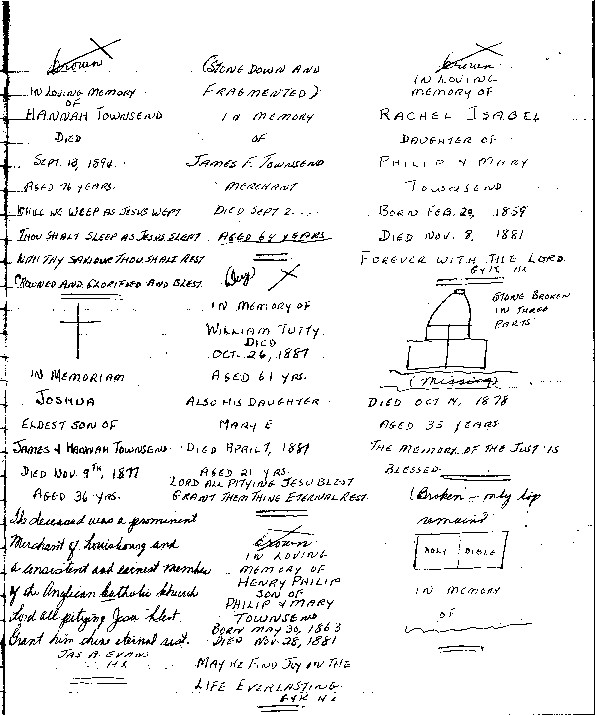 brown
IN LOVING MEMORY
OF
HANNAH TOWNSEND
DIED
SEPT. 18, 1894.
AGED 76 YEARS.
WHILE WE WEEP AS JESUS WEPT
THOU SHALT SLEEP AS JESUS SLEPT
WITH THY SAVIOUR THOU SHALT REST
CROWNED AND GLORIFIED AND BLEST.
IN MEMORIAM
JOSHUA
ELDEST SON OF
JAMES & HANNAH TOWNSEND.
DIED NOV. 9TH, 1877
AGED 36 YRS.
The deceased was a prominent
Merchant of Louisbourg and
a consistent and earnest member
of the Anglican Catholic Church
Lord all pitying Jesu blest
Grant him thine eternal rest.
JAS A. EVANS
HS
(STONE DOWN AND
FRAGMENTED)
IN MEMORY
OF
JAMES F. TOWNSEND
MERCHANT
DIED SEPT 2....
AGED 64 YEARS
IN MEMORY OF
WILLIAM TUTTY
DIED
OCT. 26, 1887
AGED 61 YRS.
ALSO HIS DAUGHTER
MARY E
DIED APRIL 7, 1887
AGED 21 YRS.
LORD ALL PITYING JESU BLEST
GRANT THEM THINE ETERNAL REST.
brown
IN LOVING
MEMORY OF
HENRY PHILIP
SON OF
PHILIP & MARY
TOWNSEND
BORN MAY 30, 1863
DIED NOV. 28, 1881
MAY HE FIND JOY IN THE
LIFE EVERLASTING.
brown
IN LOVING
MEMORY OF
RACHEL ISABEL
DAUGHTER OF
PHILIP & MARY
TOWNSEND
BORN FEB. 29, 1859
DIED NOV. 8, 1881
FOREVER WITH THE LORD
STONE BROKEN
IN THREE
PARTS
(Missing)
DIED OCT 14, 1878
AGED 35 YEARS
THE MEMORY OF THE JUST IS
BLESSED
(Broken - only top
remains)
HOLY BIBLE
IN MEMORY
OF